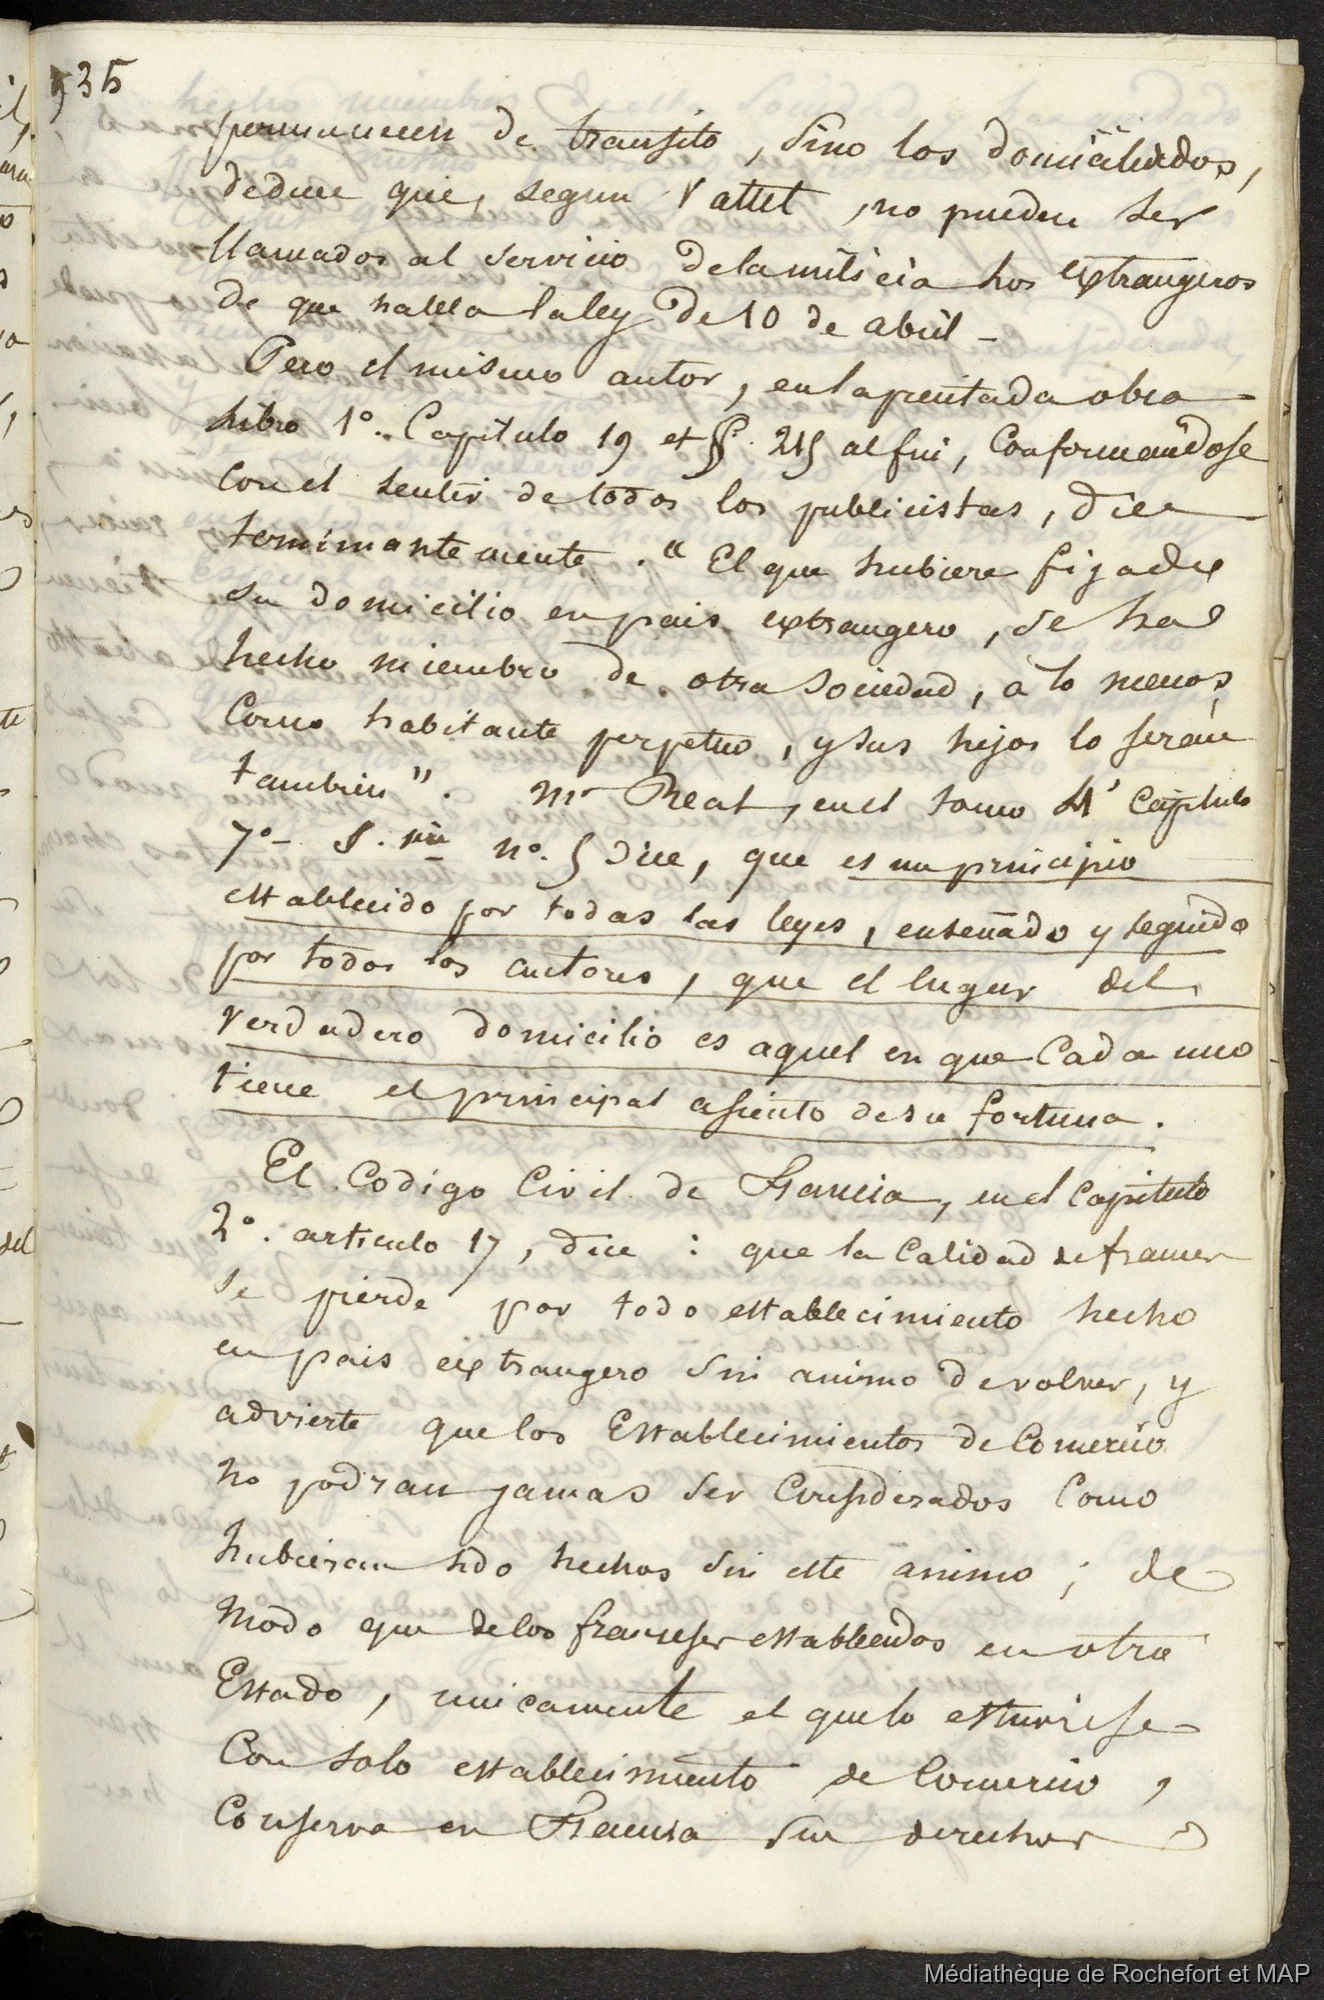 535
permanecen de transito, sino los domiciliados,
deduce que, segun Vattel, no pueden ser
llamados al servicio dela milicia los extrangeros
de que habla la ley de 10 de abril -
Pero el mismo autor, en la precitada obra
Libro 1º. Capitulo 19 et §. 215 al fin, Conformandose
con el sentir de todos los publicistas, dice
terminantemente. "El que hubiere fijado
su domicilio en pais extrangero, se ha
hecho miembro de otra sociedad, a lo menos
Como habitante perpetuo, y sus hijos lo serán
tambien". Mr Real, en el tomo 4º Capitulo
7º - S. nº. 5 dice, que es un principio
establecido por todas las leyes, enseñado y seguido
por todos los autores, que el lugar del
verdadero domicilio es aquel en que Cada uno
tiene el principal asiento de su fortuna.
El Codigo Civil de Francia, en el Capitulo
2º. articulo 17, dice : que la Calidad de frances
se pierde por todo establecimiento hecho
en pais extrangero sin animo de volver, y
advierte que los Establecimientos de Comercio
no podran jamas ser Considerados Como
hubieran sido hechos sin este animo ; de
modo que de los franceses establecidos en otro
Estado, unicamente el que lo estuviese
Con solo establecimiento de Comercio,
Conserva en Francia sus derechos
Médiathèque de Rochefort et MAP